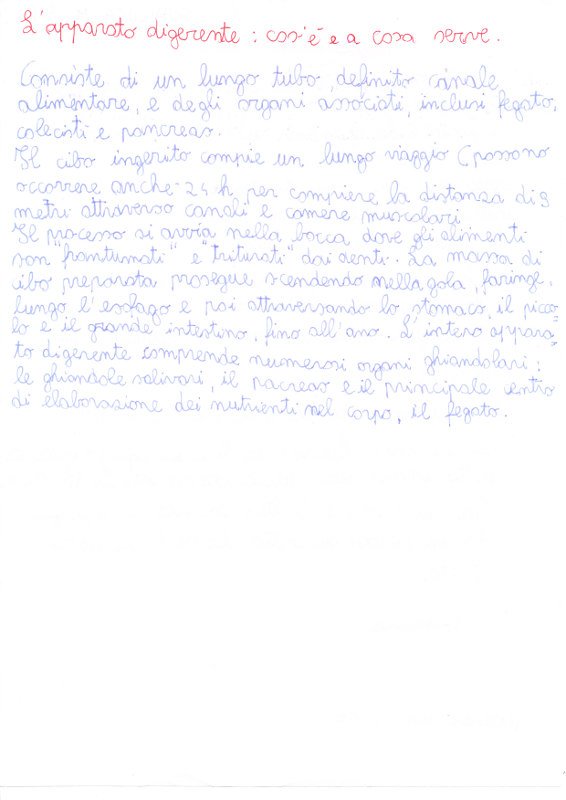 L'apparato digerente : cos'è e a cosa serve.
Consiste di un lungo tubo, definito canale
alimentare, e degli organi associati, inclusi fegato,
colecisti e pancreas.
Il cibo ingerito compie un lungo viaggio (possono
occorrere anche 24 h per compiere la distanza di 9
metri attraverso canali e camere muscolari.
Il processo si avvia nella bocca dove gli alimenti
son "frantumati" e "triturati" dai denti. La massa di
cibo preparata prosegue scendendo nella gola, faringe.
lungo l'esofago e poi attraversando lo stomaco, il picco-
lo e il grande intestino, fino all'ano. L'intero appara-
to digerente comprende numerosi organi ghiandolari:
le ghiandole salivari, il pacreas e il principale centro
di elaborazione dei nutrienti nel corpo, il fegato.